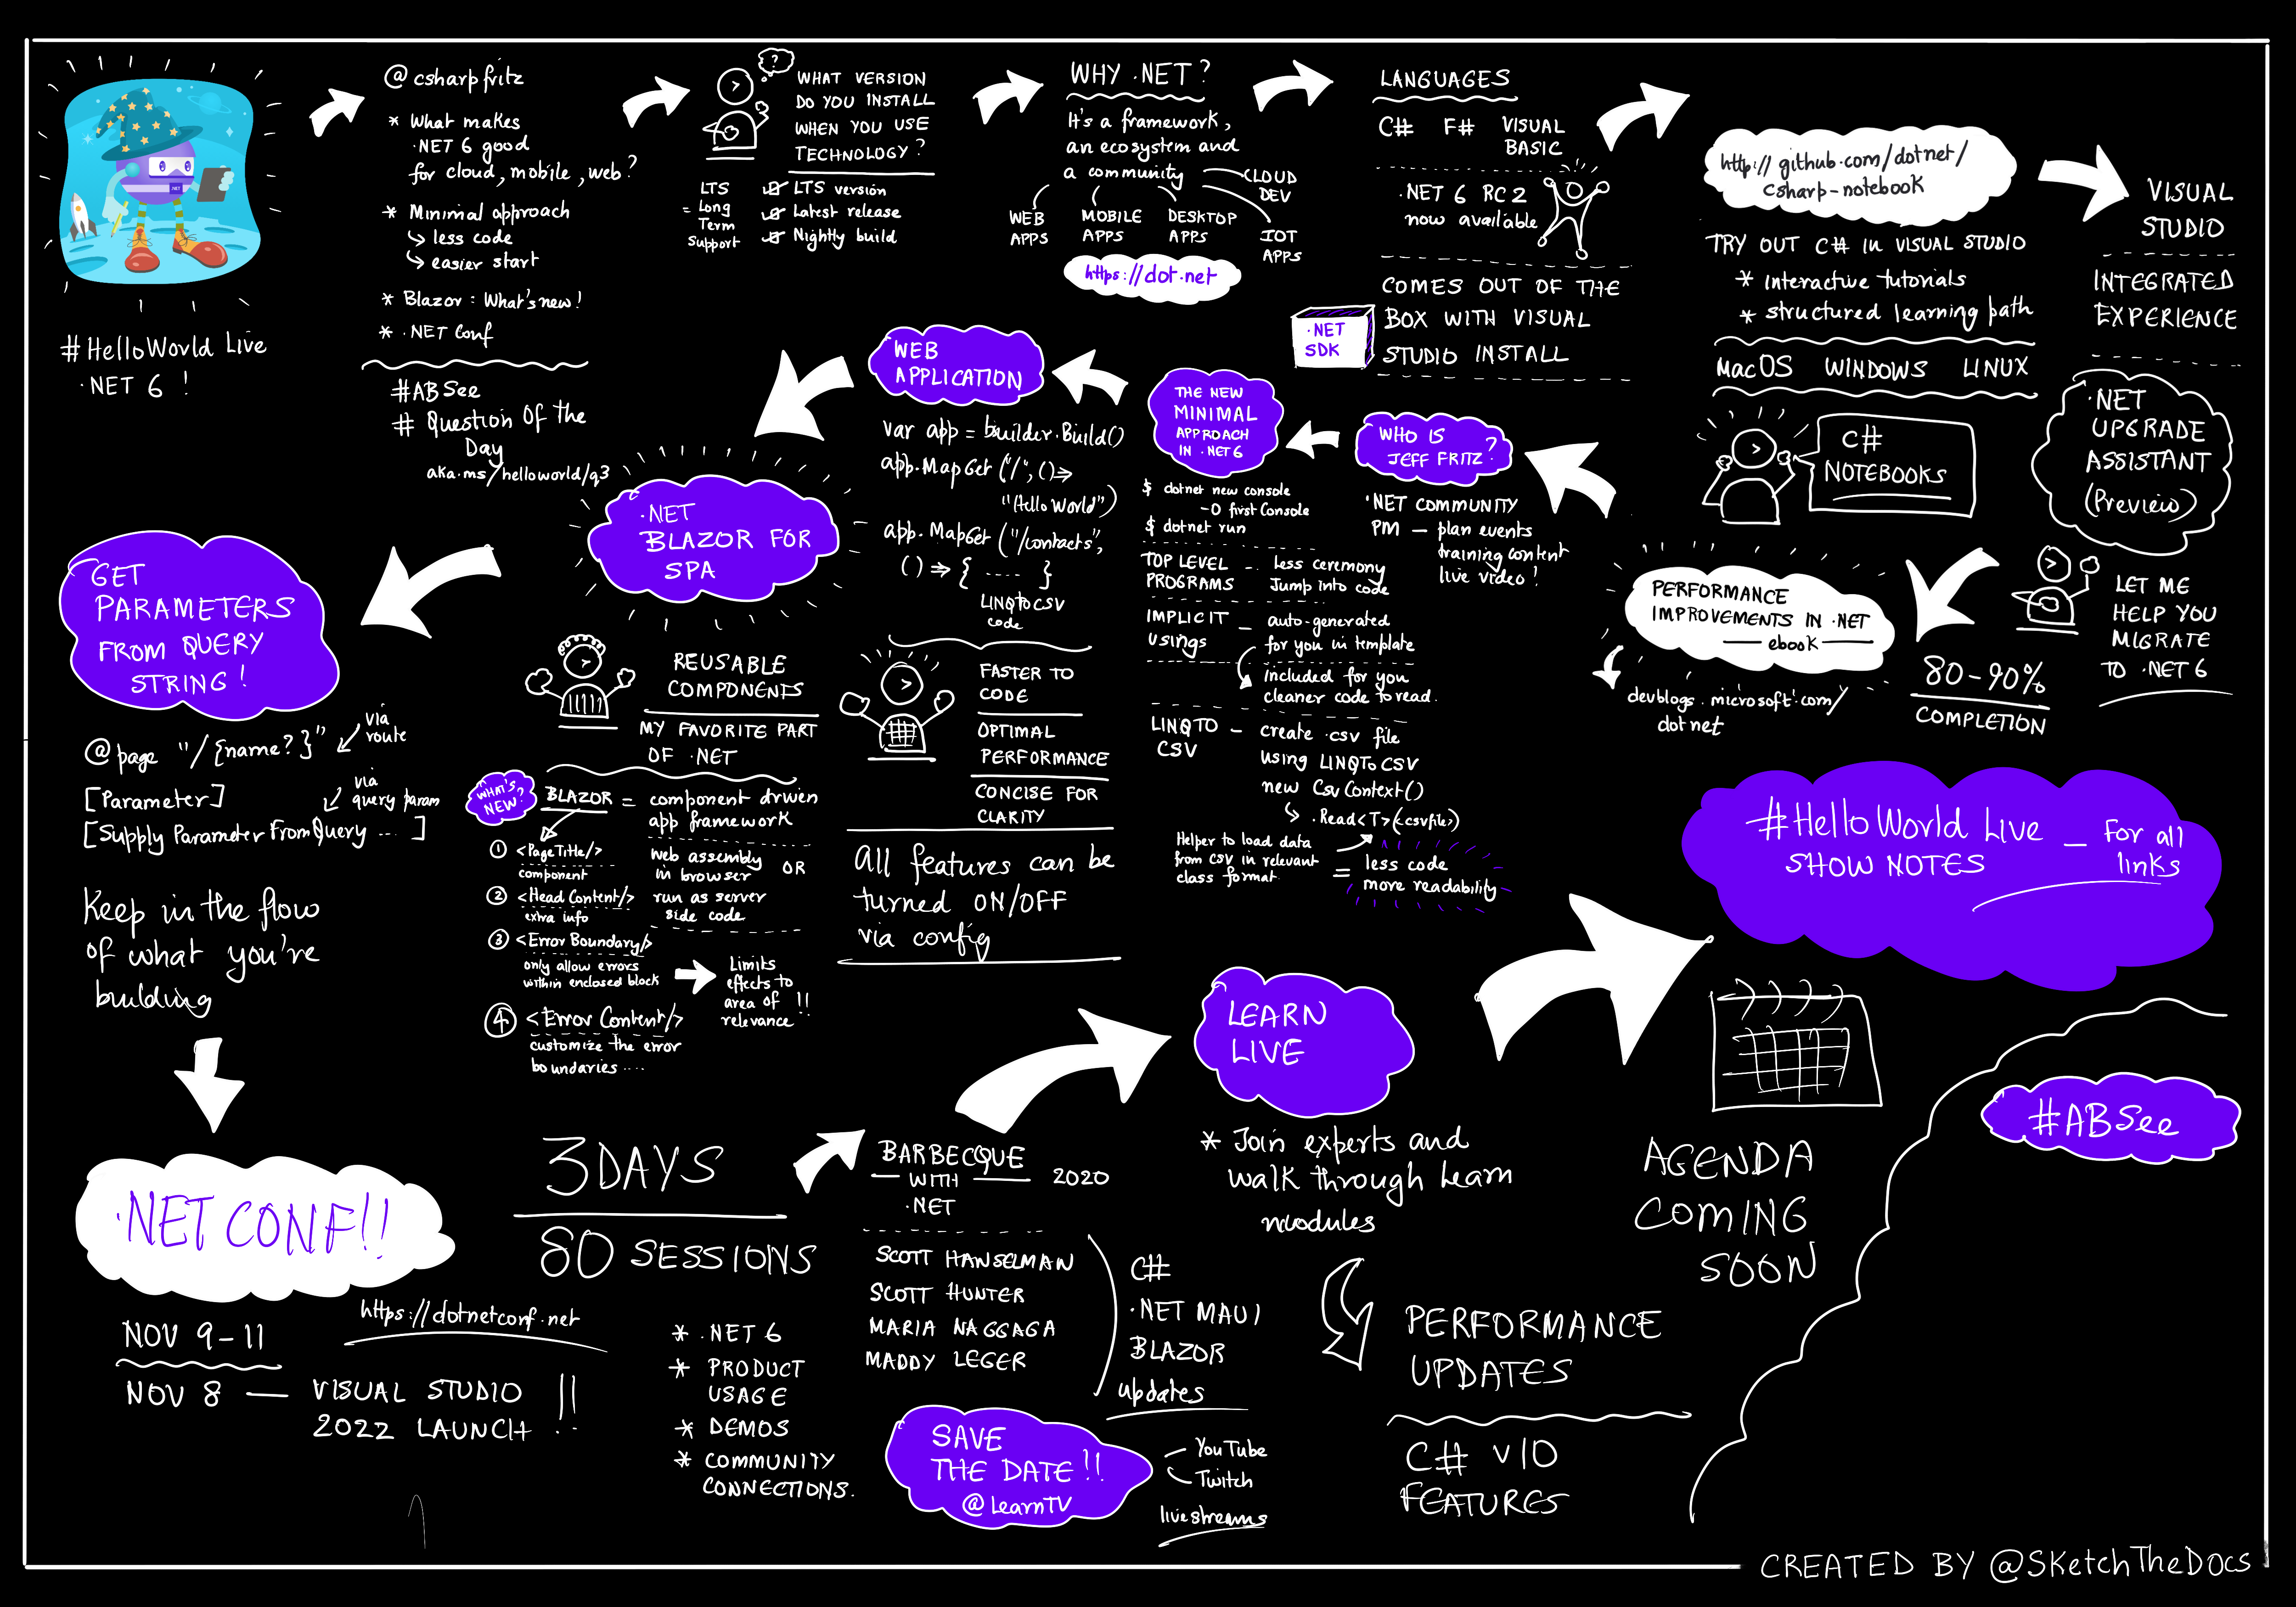 #HelloWorld Live
.NET 6 !
@csharpfritz
* What makes
.NET 6 good
for cloud, mobile, web?
* Minimal approach
↳ less code
↳ easier start
* Blazor : What's new!
* .NET Conf
#ABSee
# Question Of the
Day
aka.ms/helloworld/q3
?
WHAT VERSION
DO YOU INSTALL
WHEN YOU USE
TECHNOLOGY?
LTS
= Long
Term
Support
LTS version
Latest release
Nightly build
WHY .NET?
It's a framework,
an ecosystem and
a community
WEB
APPS
MOBILE
APPS
DESKTOP
APPS
CLOUD
DEV
IOT
APPS
https://dot.net
LANGUAGES
C# F# VISUAL
BASIC
.NET 6 RC 2
now available
COMES OUT OF THE
BOX WITH VISUAL
STUDIO INSTALL
.NET
SDK
http://github.com/dotnet/
csharp-notebook
TRY OUT C# in VISUAL STUDIO
* interactive tutorials
* structured learning path
MacOS WINDOWS LINUX
C#
NOTEBOOKS
VISUAL
STUDIO
INTEGRATED
EXPERIENCE
.NET
UPGRADE
ASSISTANT
(Preview)
LET ME
HELP YOU
MIGRATE
TO .NET 6
80-90%
COMPLETION
PERFORMANCE
IMPROVEMENTS IN .NET
ebook
devblogs.microsoft.com/
dotnet
WHO IS
JEFF FRITZ?
.NET COMMUNITY
PM — plan events
training content
live video!
THE NEW
MINIMAL
APPROACH
IN .NET 6
$ dotnet new console
-o first Console
$ dotnet run
TOP LEVEL
PROGRAMS
- less ceremony
Jump into code
IMPLICIT
usings
- auto-generated
for you in template
included for you
cleaner code to read.
LINQTO
CSV
- create .csv file
using LINQToCSV
new CsvContext()
↳ .Read<T>(<csvfile>)
Helper to load data
from CSV in relevant
class format
= less code
more readability
WEB
APPLICATION
var app = builder.Build()
app.MapGet ("/", () ⇒
"Hello World")
app.MapGet ("/contacts",
() ⇒ { ..... }
LINQToCSV
code
FASTER TO
CODE
OPTIMAL
PERFORMANCE
CONCISE FOR
CLARITY
All features can be
turned ON/OFF
via config
.NET
BLAZOR FOR
SPA
REUSABLE
COMPONENTS
MY FAVORITE PART
OF .NET
WHAT'S
NEW?
BLAZOR = component driven
app framework
Web assembly
in browser OR
run as server
side code
① <PageTitle/>
component
② <Head Content/>
extra info
③ <Error Boundary/>
only allow errors
within enclosed block
Limits
effects to
area of !!
relevance
④ <Error Content/>
customize the error
boundaries ....
GET
PARAMETERS
FROM QUERY
STRING!
@page "/{name?}"
via
route
[Parameter]
via
query param
[Supply Parameter From Query ... ]
Keep in the flow
of what you're
building
.NET CONF!!
https://dotnetconf.net
NOV 9-11
NOV 8 — VISUAL STUDIO
2022 LAUNCH !!
3 DAYS
80 SESSIONS
* .NET 6
* PRODUCT
USAGE
* DEMOS
* COMMUNITY
CONNECTIONS.
BARBECQUE
WITH
.NET
2020
SCOTT HANSELMAN
SCOTT HUNTER
MARIA NAGGAGA
MADDY LEGER
C#
.NET MAUI
BLAZOR
updates
SAVE
THE DATE!!
@LearnTV
YouTube
Twitch
livestreams
LEARN
LIVE
* Join experts and
walk through Learn
modules
PERFORMANCE
UPDATES
C# v10
FEATURES
#HelloWorld Live — For all
SHOW NOTES links
AGENDA
COMING
SOON
#ABSee
CREATED BY @SKetchTheDocs